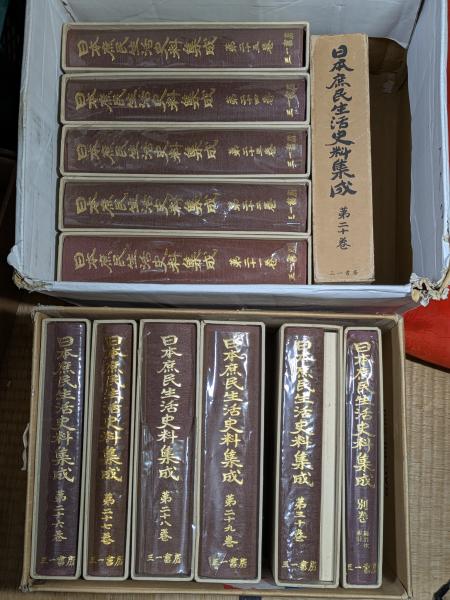 日本庶民生活史料集成 第二十五巻 三一書房
日本庶民生活史料集成 第二十四巻 三一書房
日本庶民生活史料集成 第二十三巻 三一書房
日本庶民生活史料集成 第二十二巻 三一書房
日本庶民生活史料集成 第二十一巻 三一書房
日本庶民生活史料集成 第二十巻 三一書房
日本庶民生活史料集成 第二十六巻 三一書房
日本庶民生活史料集成 第二十七巻 三一書房
日本庶民生活史料集成 第二十八巻 三一書房
日本庶民生活史料集成 第二十九巻 三一書房
日本庶民生活史料集成 第三十巻 三一書房
日本庶民生活史料集成 別巻 三一書房